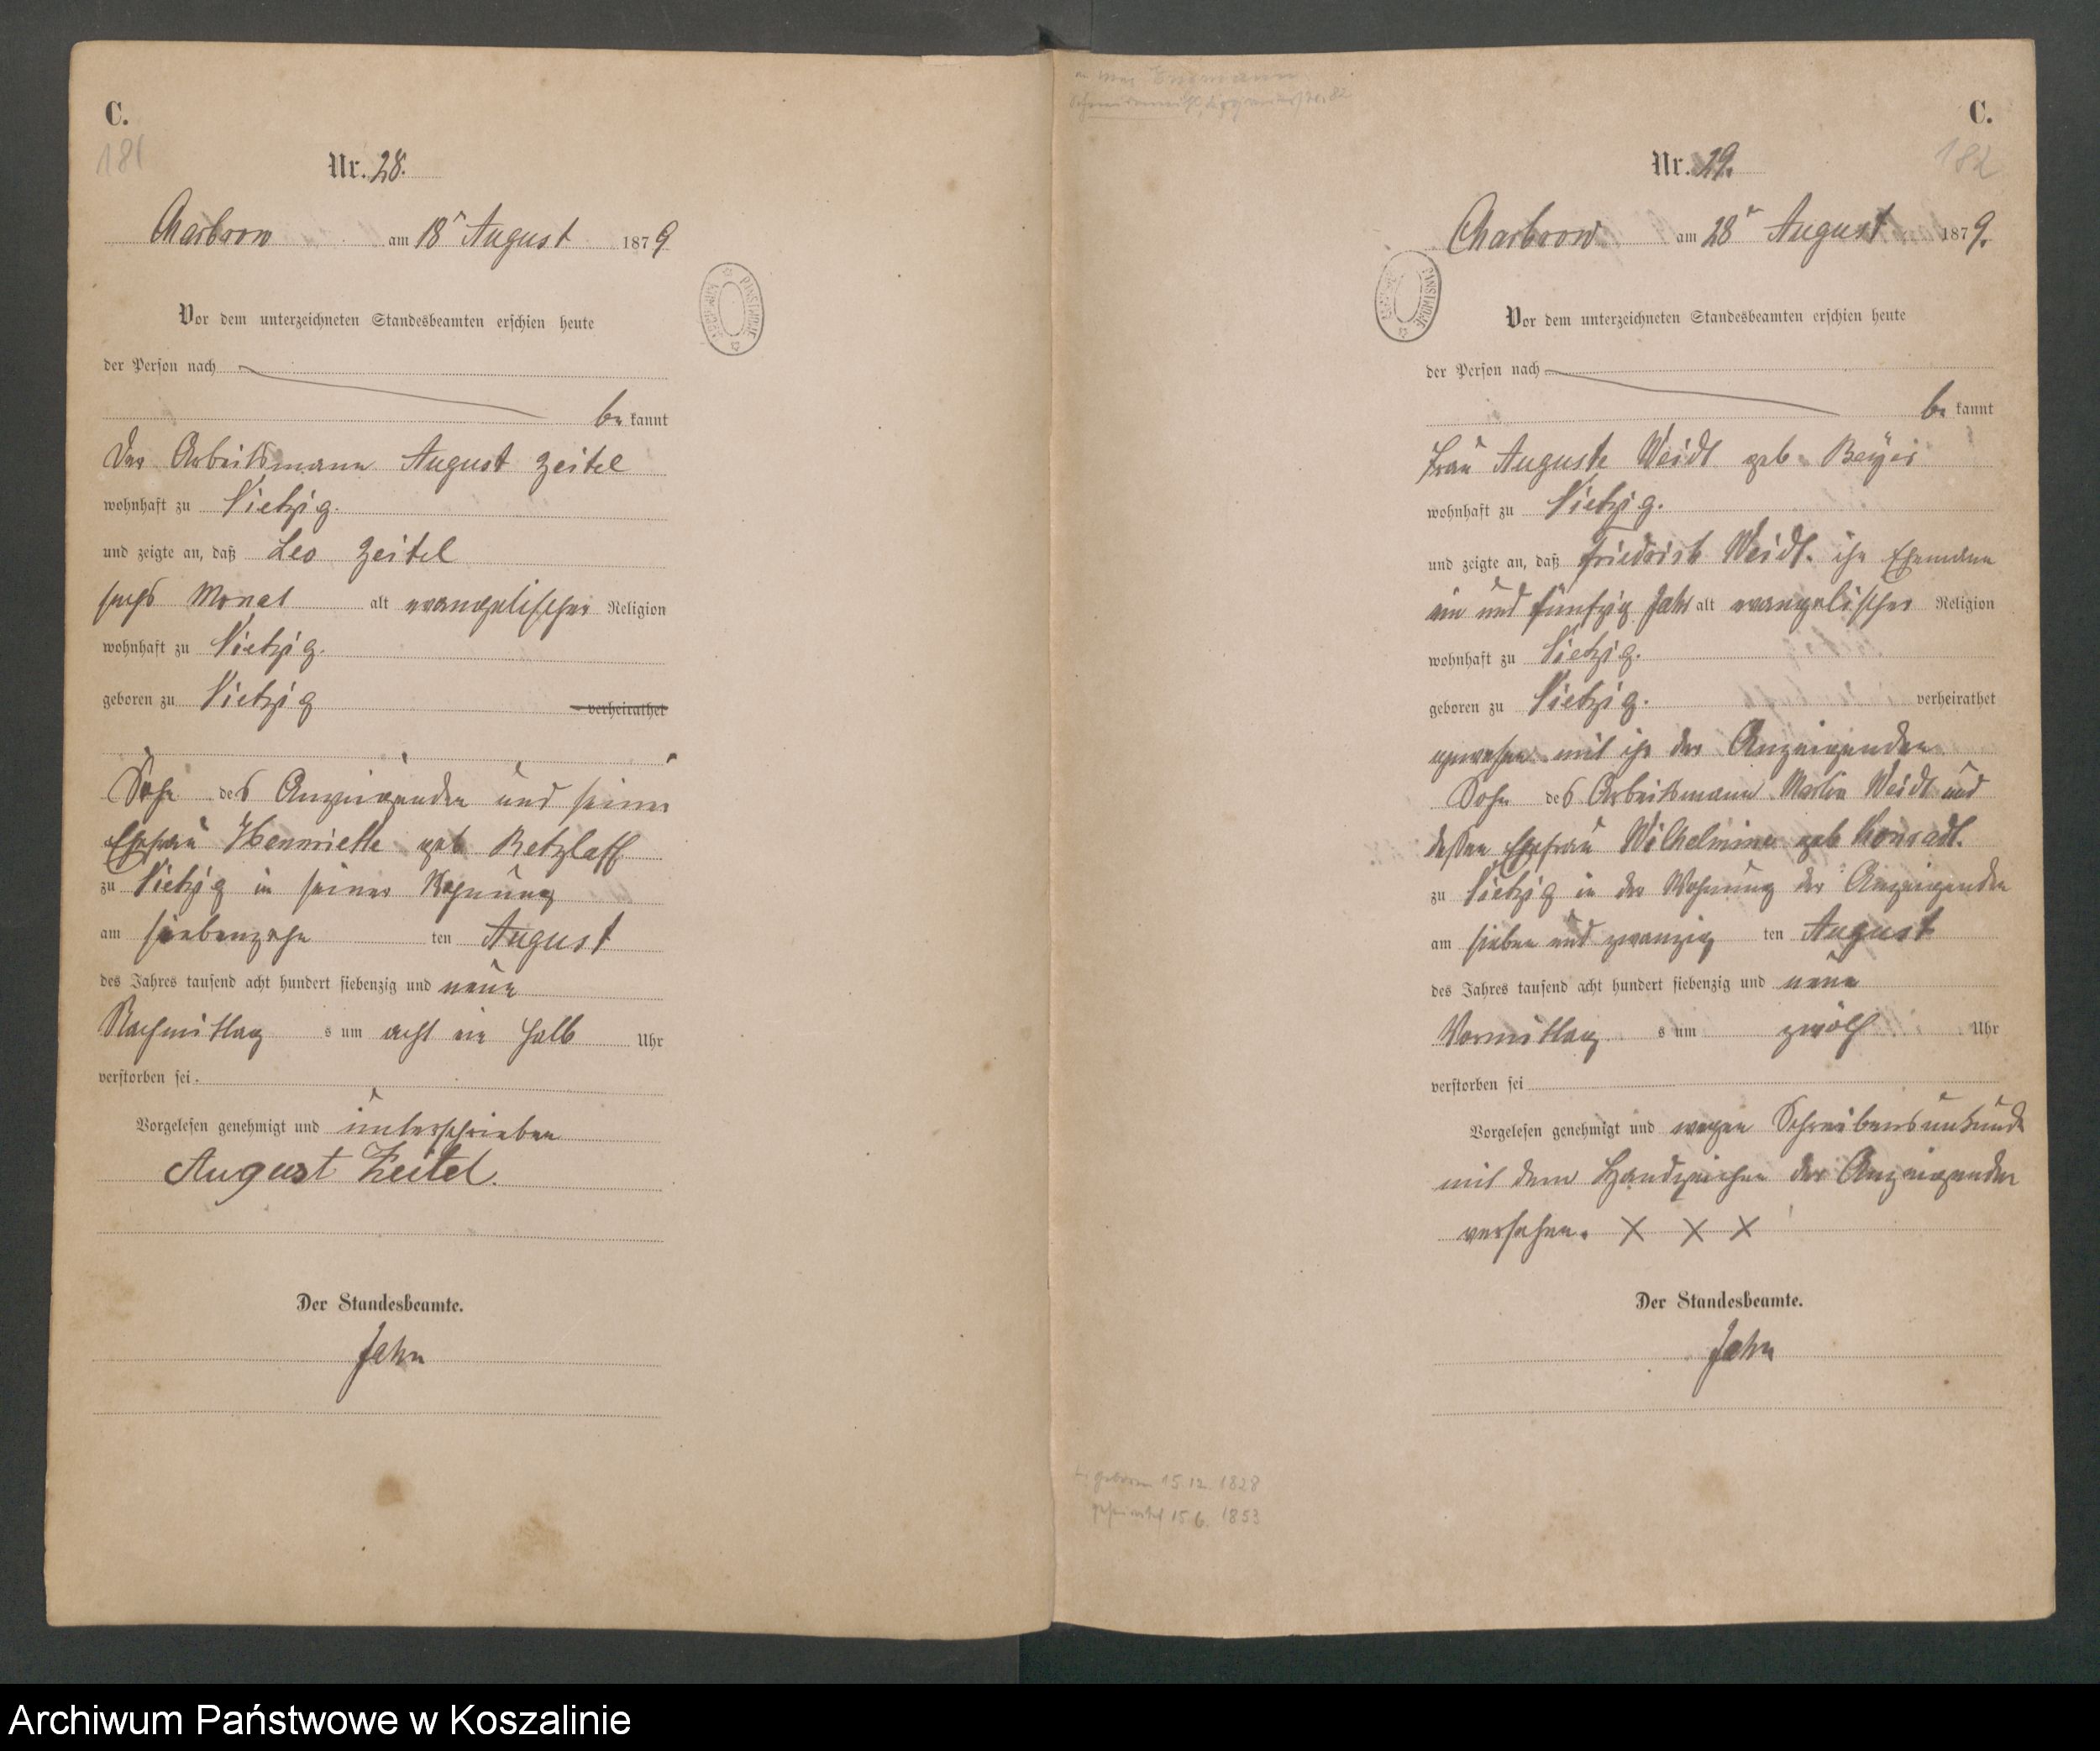 C.
181
Nr. 28.
Charbrow am 18ᵗ August 1879
Vor dem unterzeichneten Standesbeamten erschien heute
der Person nach
bekannt
Der Arbeitsmann August Zeitel
wohnhaft zu Vietzig.
und zeigte an, daß Leo Zeitel
sechs Monat alt evangelischer Religion
wohnhaft zu Vietzig.
geboren zu Vietzig verheirathet
Sohn des Anzeigenden und seiner
Ehefrau Hennriette geb Retzlaff
zu Vietzig in seiner Wohnung
am siebenzehn ten August
des Jahres tausend acht hundert siebenzig und neun
Nachmittag s um acht ein halb Uhr
verstorben sei.
Vorgelesen genehmigt und unterschrieben
August Zeitel.
Der Standesbeamte.
Jahn
ARCHIWUM PAŃSTWOWE
C.
182
Nr. 29.
Charbrow am 28ᵗ August 1879.
Vor dem unterzeichneten Standesbeamten erschien heute
der Person nach
bekannt
Frau Auguste Weidt geb Beyer
wohnhaft zu Vietzig.
und zeigte an, daß Friedrich Weidt. ihr Ehemann
ein und fünfzig Jahr alt evangelischer Religion
wohnhaft zu Vietzig.
geboren zu Vietzig. verheirathet
gewesen mit ihr der Anzeigenden
Sohn des Arbeitsmann Martin Weidt und
deßen Ehefrau Wilhelmine geb Konradt.
zu Vietzig in der Wohnung der Anzeigenden
am sieben und zwanzig ten August
des Jahres tausend acht hundert siebenzig und neun
Vormittag s um zwölf Uhr
verstorben sei
Vorgelesen genehmigt und wegen Schreibensunkunde
mit dem Handzeichen der Anzeigenden
versehen. X X X
Der Standesbeamte.
Jahn
PAŃSTWOWE
geboren 15.12. 1828
geheiratet 15.6. 1853
Archiwum Państwowe w Koszalinie